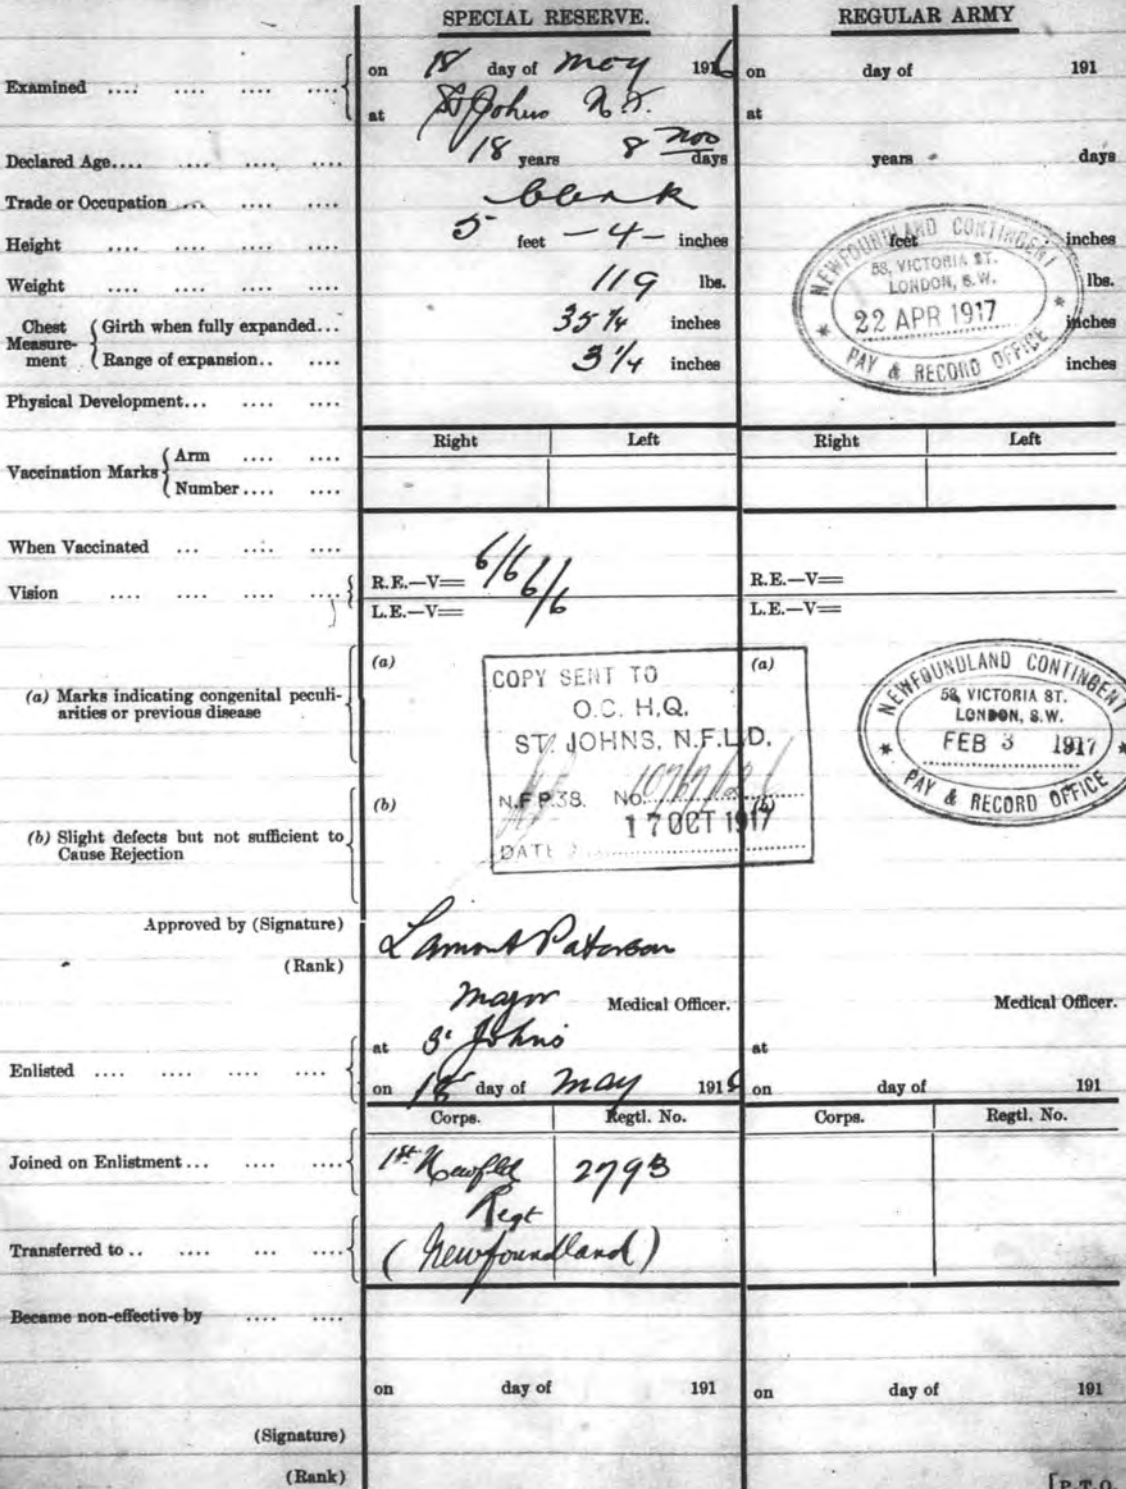 SPECIAL RESERVE. REGULAR ARMY
Examined .... .... .... .... on 18 day of May 1916 on day of 191
at St Johns N.F. at
Declared Age.... .... .... .... 18 years 8 mos days years days
Trade or Occupation .... .... .... Clerk
Height .... .... .... .... 5 feet - 4 - inches feet inches
Weight .... .... .... .... 119 lbs. lbs.
Chest Measure-ment Girth when fully expanded... 35 1/4 inches inches
Range of expansion.. .... 3 1/4 inches inches
NEWFOUNDLAND CONTINGENT
58, VICTORIA ST.
LONDON, S.W.
22 APR 1917
PAY & RECORD OFFICE
Physical Development... .... ....
Right Left Right Left
Vaccination Marks Arm .... ....
Number .... ....
When Vaccinated ... .... ....
Vision .... .... .... .... R.E.—V= 6/6 R.E.—V=
L.E.—V= 6/6 L.E.—V=
(a) Marks indicating congenital peculi-
arities or previous disease
(a) (a)
COPY SENT TO
O.C. H.Q.
ST. JOHNS, N.F.L.D.
N.F.P.38. No.
17 OCT 1917
DATE
NEWFOUNDLAND CONTINGENT
58, VICTORIA ST.
LONDON, S.W.
FEB 3 1917
PAY & RECORD OFFICE
(b) Slight defects but not sufficient to
Cause Rejection
(b) (b)
Approved by (Signature) Lamont Paterson
(Rank) Major Medical Officer. Medical Officer.
Enlisted .... .... .... .... at St Johns at
on 18 day of May 1916 on day of 191
Corps. Regtl. No. Corps. Regtl. No.
Joined on Enlistment... .... .... 1st Newfld 2793
Regt
Transferred to .. .... ... .... (Newfoundland)
Became non-effective by .... ....
on day of 191 on day of 191
(Signature)
(Rank)
[P.T.O.